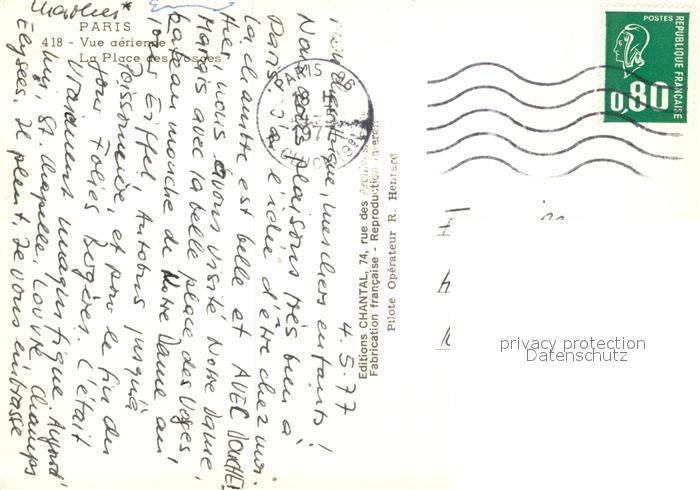 PARIS
418 - Vue aérienne
La Place des Vosges
4. 5. 77
mes chers enfants!
Nous nous plaisons très bien à
Paris
la chambre est belle et AVEC DOUCHE!
Hier nous avons visité Notre Dame,
Marais avec la belle place des Voges,
bateau mouche de Notre Dame au
Tour Eiffel Autobus jusqu'à
Poissonnière, et pour la fin du
jour Folies Bergères. C'était
vraiment magnifique. Aujourd'
hui St. Chapelle, Louvre, Champs
Elysées. Il pleut. Je vous embrasse
Editions CHANTAL, 74, rue des
Fabrication française - Reproduction
Pilote Opérateur R. Henrard
PARIS 96
POSTES
REPUBLIQUE FRANÇAISE
0,80
privacy protection
Datenschutz